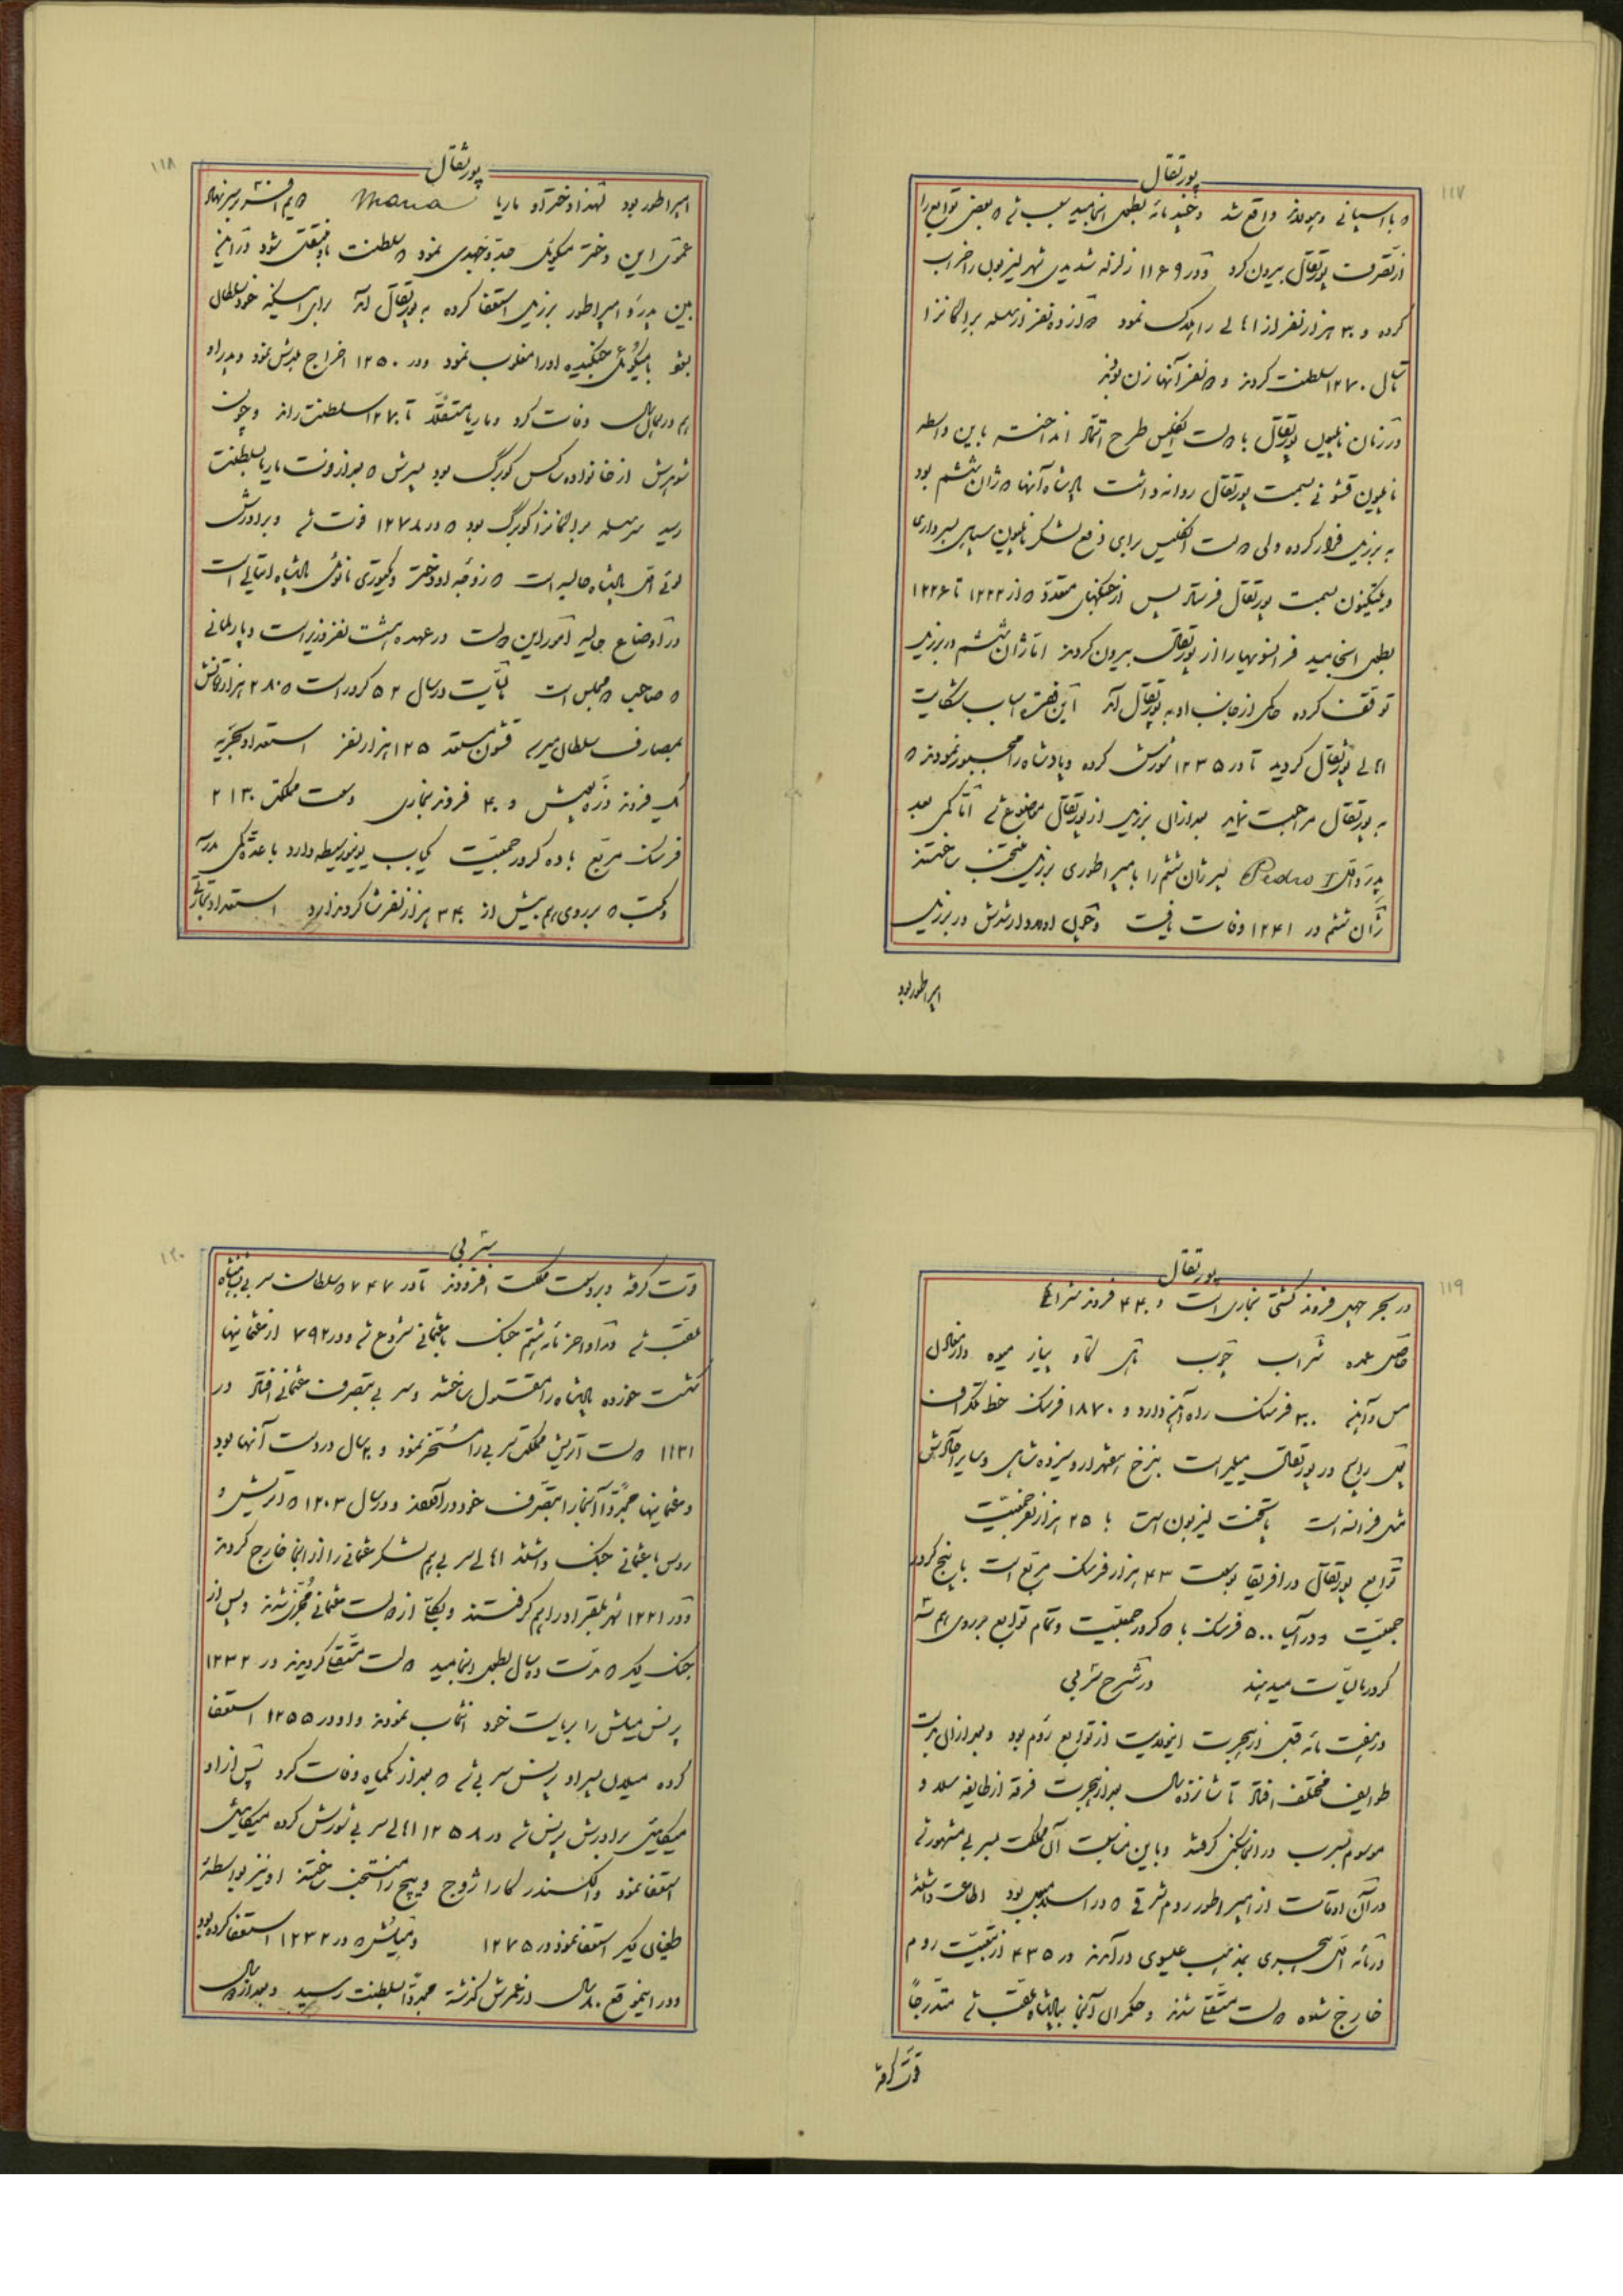 ۱۱۷
پورتقال
با اسپانی و هولاند واقع شد و چند مائه بطول انجامید سبب شد بعضی توابع را
از تصرف پورتقال بیرون کرد و در ۱۱۶۹ زلزله شدیدی شهر لیزبون را خراب
کرده و ۳۰ هزار نفر از اهالی را هلاک نمود از ده نفر از سلسله براگانزا
تا سال ۱۲۷۰ سلطنت کردند و نفر آنها زن بودند
در زمان ناپلیون پورتقال با دولت انگلیس طرح اتحاد انداخته باین واسطه
ناپلیون قشونی بسمت پورتقال روانه داشت پادشاه آنها ژان ششم بود
به برزیل فرار کرده ولی دولت انگلیس برای دفع لشکر ناپلیون سپاهی بسرداری
ولینگتون بسمت پورتقال فرستاد پس از جنگهای متعدده از ۱۲۲۲ تا ۱۲۲۶
بطول انجامید فرانسویها را از پورتقال بیرون کردند اما ژان ششم در برزیل
توقف کرده حاکمی از جانب او به پورتقال آمد این فقره اسباب شکایت
اهالی پورتقال گردید تا در ۱۲۳۵ شورش کرده و پادشاه را مجبور نمودند
به پورتقال مراجعت نماید بعد از آن برزیل از پورتقال موضوع شد اما کمی بعد
پدرو اول Pedro I پسر ژان ششم را بامپراطوری برزیل منتخب ساختند
ژان ششم در ۱۲۴۱ وفات یافت و چون اولاد ارشدش در برزیل
امپراطور بود
۱۱۸
پورتقال
امپراطور بود لهذا دختر او ماریا Maria
عموی این دختر میکویل جد و جهدی نمود سلطنت باو منتقل شود در این
بین پدرو امپراطور برزیل استعفا کرده به پورتقال آمد برای اینکه خود سلطان
بشود با میکویل جنگیده او را مغلوب نمود و در ۱۲۵۰ اخراج بلدش نمود و پدرو
هم در همان سال وفات کرد و ماریا مستقلاً تا ۱۲۷۰ سلطنت راند و چون
شوهرش از خانواده ساکس کوبرگ بود پسرش بعد از فوت ماریا بسلطنت
رسید سرسلسله براگانزا کوبرگ بود در ۱۲۷۸ فوت شد و برادرش
لوئی اول پادشاه حالیه است زوجه او دختر ویکتوری مانوئل پادشاه ایتالی است
در اوضاع حالیه امور این دولت در عهده هشت نفر وزیر است و پارلمانی
صاحب مجلس است مالیات در سال ۵۲ کرور است ۲۸۰ هزار تومانش
بمصارف سلطان میرسد قشون مستعد ۱۲۵ هزار نفر استعداد بحریه
یک فروند زره پوش و ۴۰ فروند بخاری وسعت مملکت ۲۱۳۰
فرسنگ مربع با ده کرور جمعیت یک باب یونیورسیطه دارد با عده کمی مدرسه
و مکتب بر روی هم بیش از ۳۴۰ هزار نفر شاگرد ندارد استعداد تجارتی
۱۱۹
پورتقال
در بحر چهل فروند کشتی بخاری است و ۴۴۰ فروند شراعی
حاصل عمده شراب چوب ماهی نمک پیاز میوه و از معادن
مس و آهن ۳۰۰ فرسنگ راه آهن دارد و ۱۸۷۰ فرسنگ خط تلگراف
پول رایج در پورتقال میلیس است بنرخ هفتهزار و سیزده شاهی و سایر اجزایش
مثل فرانسه است پایتخت لیزبون است با ۲۵ هزار نفر جمعیت
توابع پورتقال در افریقا بوسعت ۴۳ هزار فرسنگ مربع است با پنج کرور
جمعیت و در آسیا ۵۰۰ فرسنگ با کرور جمعیت و تمام توابع بر روی هم سه
کرور مالیات میدهند در شرح سربی
در هفت مائه قبل از هجرت اینولایت از توابع روم بود و بعد از آن بدست
طوایف مختلف افتاد تا شانزده سال بعد از هجرت فرقه از طایفه سلاو
موسوم بسرب در آنجا سکنی گرفتند و باین مناسبت آن مملکت بسربی مشهور شد
در آن اوقات از امپراطور روم شرقی در اسلامبول بود اطاعت داشتند
در مائه اول هجری بمذهب عیسوی درآمدند در ۴۳۵ از تبعیت روم
خارج شده دولت مستقلی شدند و حکمران آنجا بپادشاه ملقب شد متدرجاً
قوت گرفته
۱۲۰
سربی
قوت گرفته و بر وسعت مملکت افزودند تا در ۷۴۷ سلطان سربی بپادشاه
ملقب شد در اواخر مائه هشتم جنگ با عثمانی شروع شد و در ۷۹۲ از عثمانیها
شکست خورده پادشاه را مقتول ساختند و سربی بتصرف عثمانی افتاد در
۱۱۳۱ دولت اتریش مملکت سربی را مسخر نمود و ۲۰ سال در دست آنها بود
و عثمانیها مجدداً آنجا را بتصرف خود درآوردند و در سال ۱۲۰۳ اتریش و
روس با عثمانی جنگ داشتند اهالی سربی هم لشکر عثمانی را از آنجا خارج کردند
و در ۱۲۲۱ شهر بلغراد را هم گرفتند و یکجا از دولت عثمانی مجزی شدند و پس از
جنگ دیگر مدت ده سال بطول انجامید دولت مستقلی گردیدند در ۱۲۳۲
پرنس میلش را بریاست خود انتخاب نمودند و او در ۱۲۵۵ استعفا
کرده میلان پسر او پرنس سربی شد بعد از یکماه وفات کرد پس از او
میکائیل برادرش پرنس شد در ۱۲۵۸ اهالی سربی شورش کرده میکائیل
استعفا نمود و الکسندر کارا ژوج ویچ را منتخب ساختند او نیز بواسطه
طغیان دیگر استعفا نمود در ۱۲۷۵ و میلش در ۱۲۳۲ استعفا کرده بود
و در اینموقع ۸۰ سال از عمرش گذشته مجدداً بسلطنت رسید و بعد از سال